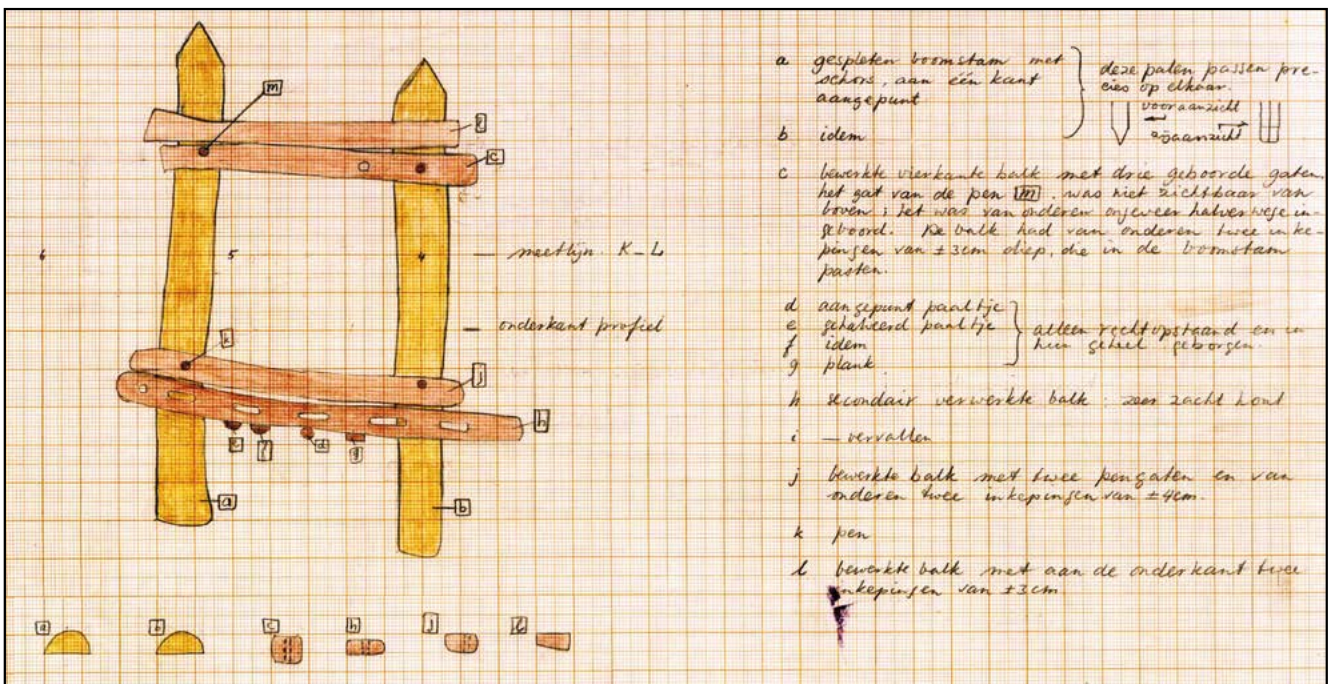 m
l
c
6
5
4
— meetlijn K–L
— onderkant profiel
k
j
h
e
f
d
g
a
b
a
b
c
h
j
l
a gespleten boomstam met
schors, aan één kant
aangepunt
b idem
deze palen passen pre-
cies op elkaar.
vooraanzicht
zijaanzicht
c bewerkte vierkante balk met drie geboorde gaten.
het gat van de pen m was niet zichtbaar van
boven; het was van onderen ongeveer halverwege in-
geboord. De balk had van onderen twee inke-
pingen van ±3cm diep, die in de boomstam
pasten.
d aangepunt paaltje
e gehalveerd paaltje
f idem
g plank
alleen rechtopstaand en in
hun geheel geborgen.
h secondair verwerkte balk: zeer zacht hout
i — vervallen
j bewerkte balk met twee pengaten en van
onderen twee inkepingen van ±4cm.
k pen
l bewerkte balk met aan de onderkant twee
inkepingen van ±3cm